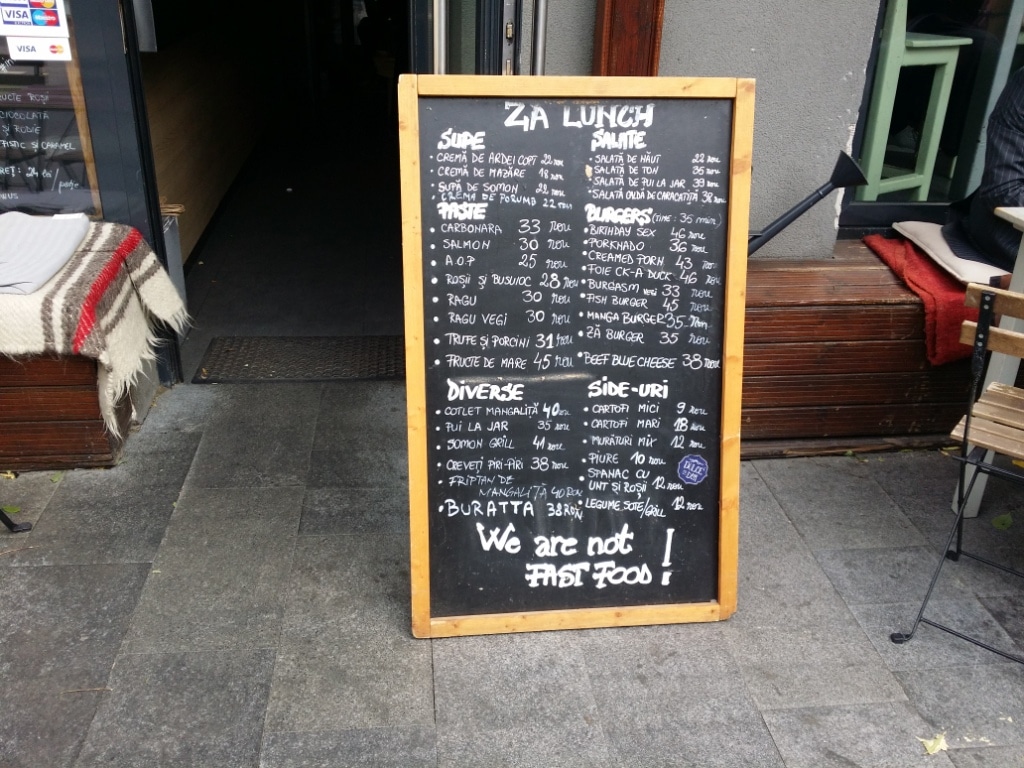 VISA
VISA
CIOCOLATĂ
ȘI RODIE
ZA LUNCH
SUPE
• CREMĂ DE ARDEI COPT 22 RON
• CREMĂ DE MAZĂRE 18 RON
• SUPĂ DE SOMON 22 RON
• CREMA DE PORUMB 22 RON
PASTE
• CARBONARA 33 RON
• SALMON 30 RON
• A.O.P 25 RON
• ROSII ȘI BUSUIOC 28 RON
• RAGU 30 RON
• RAGU VEGI 30 RON
• TRUFE ȘI PORCINI 31 RON
• FRUCTE DE MARE 45 RON
DIVERSE
• COTLET MANGALIȚĂ 40 RON
• PUI LA JAR 35 RON
• SOMON GRILL 41 RON
• CREVEȚI PIRI-PIRI 38 RON
• FRIPTAN DE
MANGALIȚĂ 40 RON
• BURATTA 38 RON
SALATE
• SALATĂ DE NĂUT 22 RON
• SALATĂ DE TON 35 RON
• SALATĂ DE PUI LA JAR 39 RON
• SALATĂ CALDĂ DE CARACATIȚĂ 38 RON
BURGERS (TIME: 35 min)
• BIRTHDAY SEX 46 RON
• PORKHADO 36 RON
• CREAMED PORN 43 RON
• FOIE CK-A DUCK 46 RON
• BURGASM VEGI 33 RON
• FISH BURGER 45 RON
• MANGA BURGER 35 RON
• ZĂ BURGER 35 RON
• BEEF BLUE CHEESE 38 RON
SIDE-URI
• CARTOFI MICI 9 RON
• CARTOFI MARI 18 RON
• MURĂTURI MIX 12 RON
• PIURE 10 RON
• SPANAC CU
UNT ȘI ROȘII 12 RON
• LEGUME SOTE/GRILL 12 RON
We are not
FAST FOOD!